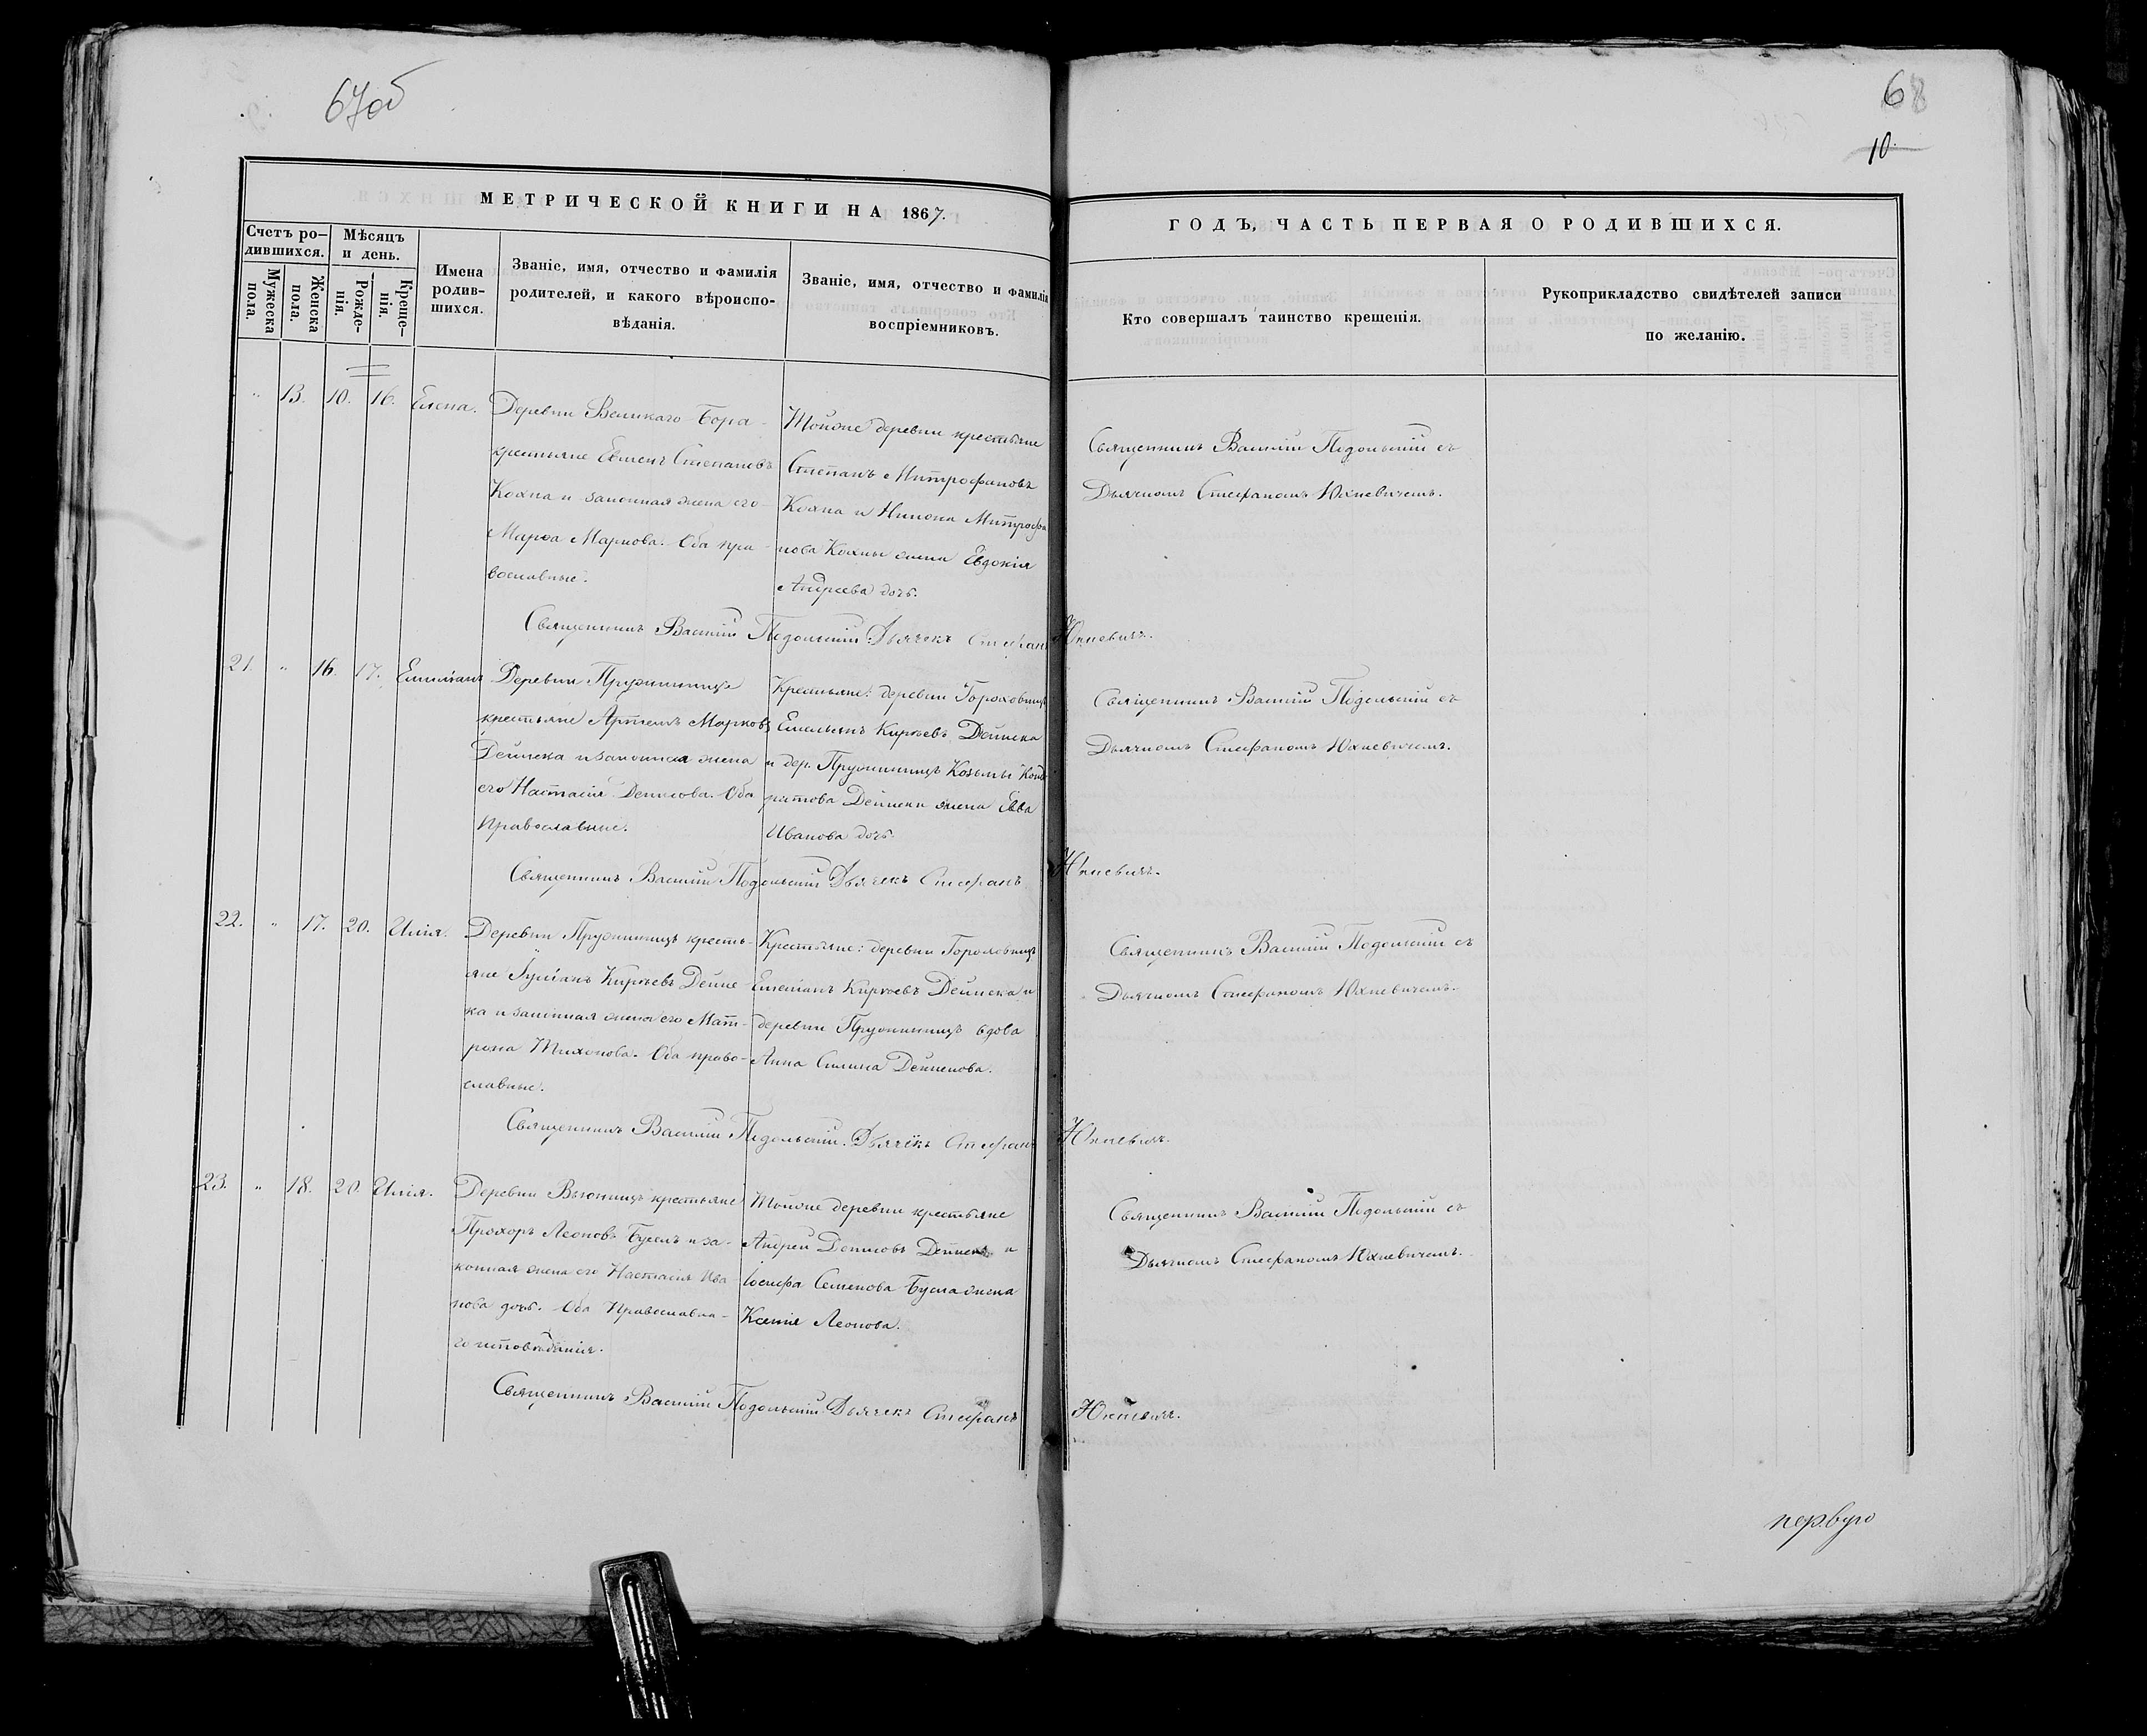 67об
68
10.
МЕТРИЧЕСКОЙ КНИГИ НА 1867.
ГОДЪ, ЧАСТЬ ПЕРВАЯ О РОДИВШИХСЯ.
Счетъ ро-
дившихся.
Мужеска
пола.
Женска
пола.
Мѣсяцъ
и день.
Рожде-
нія.
Креще-
нія.
Имена
родив-
шихся.
Званіе, имя, отчество и фамилія
родителей, и какого вѣроиспо-
вѣданія.
Званіе, имя, отчество и фамилія
воспріемниковъ.
Кто совершалъ таинство крещенія.
Рукоприкладство свидѣтелей записи
по желанію.
„ 13. 10. 16. Елена.
Деревни Великаго Бора
крестьяне Степановъ
Кохна и законная жена его
Марѳа Маркова. Оба пра-
вославные.
Тойже деревни крестьяне
Степанъ Митрофановъ
Кохна и Митрофа
нова Кохны жена Евдокія
Андреева дочь.
Священникъ Василій Подольскій съ
Дьячкомъ Стефаномъ Юхневичемъ.
Священникъ Василій Подольскій Дьячекъ Стефанъ Юхневичъ.
21. „ 16. 17. Емиліанъ
Деревни Пружинищъ
крестьяне Артемъ Марковъ
Дейнека и законная жена
его Настасія Денисова. Оба
Православные.
Крестьяне: деревни Гороховищъ
Емельянъ Кирѣевъ Дейнека
и дер. Пружинищъ Козьмы Конд
ратова Дейнеки жена Евва
Иванова дочь.
Священникъ Василій Подольскій съ
Дьячкомъ Стефаномъ Юхневичемъ.
Священникъ Василій Подольскій Дьячекъ Стефанъ Юхневичъ.
22. „ 17. 20. Илія.
Деревни Пружинищъ кресть-
яне Іуліанъ Кирѣевъ Дейне-
ка и законная жена его Мат-
рона Тихонова. Оба право-
славные.
Крестьяне: деревни Гороховищъ
Емеліанъ Кирѣевъ Дейнека и
деревни Пружинищъ вдова
Анна Силина Дейнекова.
Священникъ Василій Подольскій съ
Дьячкомъ Стефаномъ Юхневичемъ.
Священникъ Василій Подольскій. Дьячекъ Стефанъ Юхневичъ.
23. „ 18. 20. Илія.
Деревни Вьюнищъ крестьяне
Прохоръ Леоновъ Бусель и за-
конная жена его Настасія Ива-
нова дочь. Оба Православна-
го исповѣданія.
Тойже деревни крестьяне
Андрей Дейнека и
Іосифа Семенова Бусла жена
Ксенія Леонова.
Священникъ Василій Подольскій съ
Дьячкомъ Стефаномъ Юхневичемъ.
Священникъ Василій Подольскій Дьячекъ Стефанъ Юхневичъ.